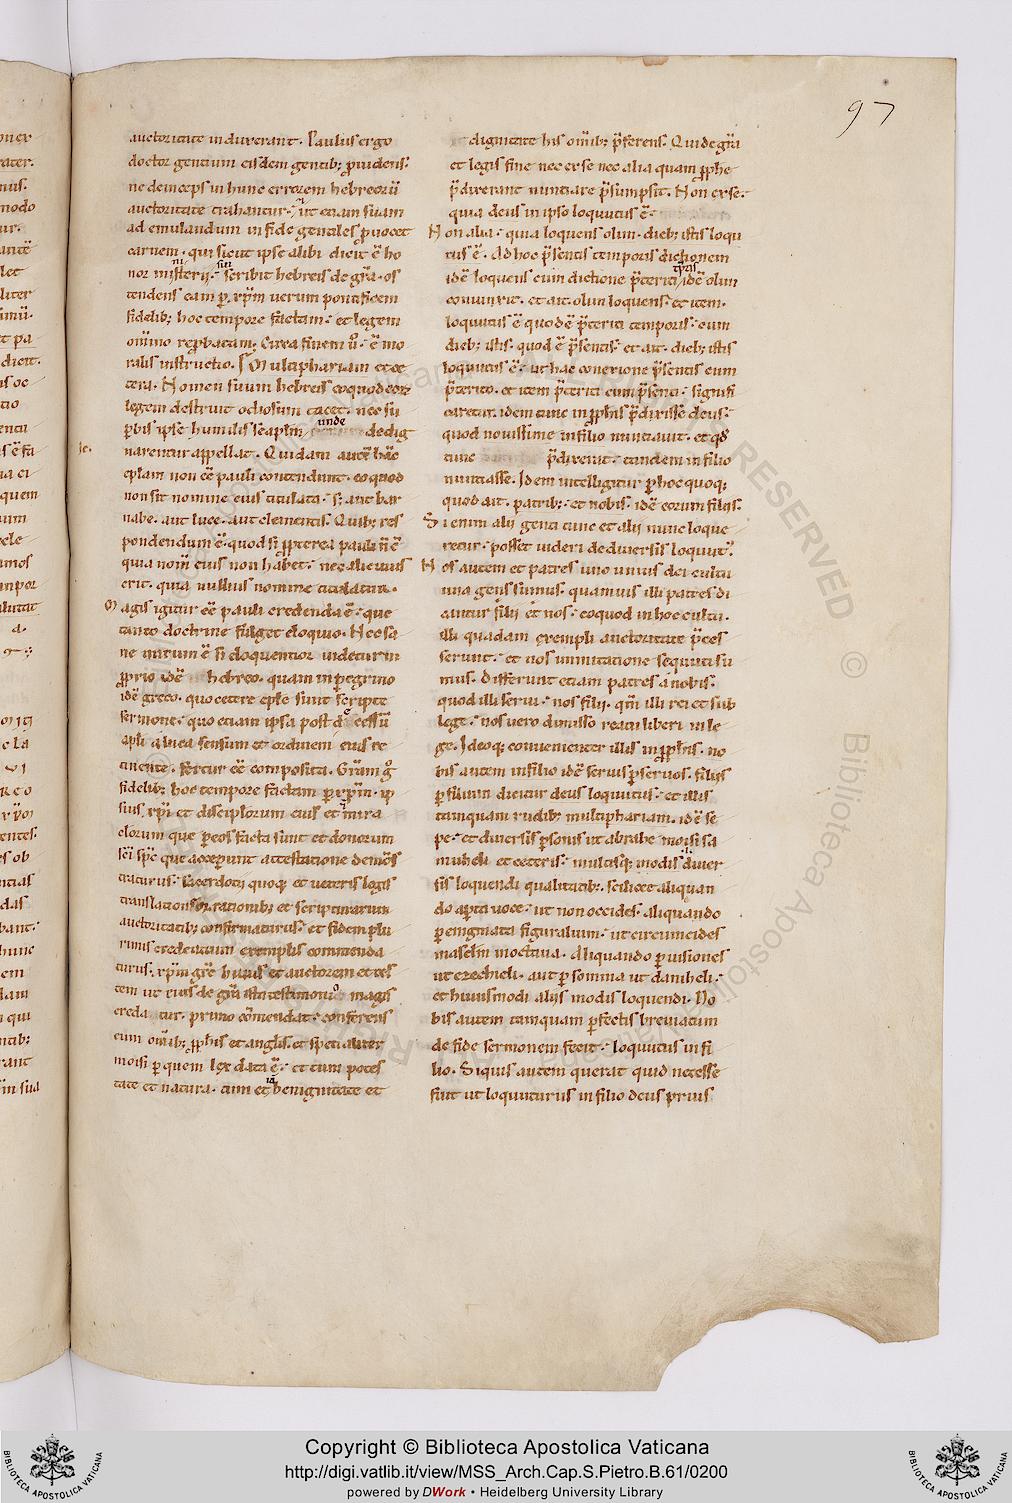 97
auctoritate induxerant. Paulus ergo
doctor gentium eisdem gentib; p̄uidens.
ne deinceps in hunc errorem hebreorū
auctoritate trahantur. ut etiam suam
ad emulandum in fide gentiles p̄uocet
carnem. qui sicut ipse alibi dicit ē ho
norministerij. scribit hebreis de gr̄a. os
tendens eam p xp̄m uerum pontificem
fidelib; hoc tempore factam. et legem
om̄ino rep̄robatam. Circa finem ů. ē mo
ralis instructio. Multiphariam et ce
tera. Nomen suum hebreis eo quod eorum
legem destruit odiosum tacet. nec su
perbis ipse humilis se apl̄m unde dedig
narentur appellat. Quidam autē hāc
ep̄lam non eē pauli contendunt. eo quod
non sit nomine eius titulata. s; aut bar
nabe. aut luce. aut clementis. Quib; res
pondendum ē. quod si p̄pterea pauli n̄ ē
quia nom̄ eius non habet. nec alicuius
erit. quia nullius nomine titulatur.
Magis igitur eē pauli credenda ē. que
tanto doctrine fulget eloquio. Nec sa
ne mirum ē si eloquentior uidetur in
p̄prio idē hebreo. quam in peregrino
idē greco. quo cetere ep̄le sunt scripte
sermone. quo etiam ipsa post decessū
apl̄i a luca sensum et ordinem eius re
tinente. fertur eē composita. Gr̄am g̊
fidelib; hoc tempore factam p xp̄m. ip
sius xp̄i et discipl̄orum eius et mira
clorum que p eos facta sunt et donorum
sc̄i sp̄c que acceperunt attestatione demōs
traturus. sacerdotij quoq; et ueteris legis
translationem rationib; et scripturarum
auctoritatib; confirmaturus. et fidem plu
rimis credentium exemplis commenda
turus. xp̄m gr̄e huius et auctorem et tes
tem ut eius de gr̄a ista testimonio magis
credatur. primo cōmendat. conferens
eum om̄ib; p̄phis et angl̄is. et specialiter
moisi p quem lex data ē. et cum potes
tate et natura. tum etiam benignitate et
dignitate his om̄ib; p̄ferens. Qui de gr̄a
et legis fine nec ex se nec alia quam p̄phe
p̄dixerant nuntiare p̄sumpsit. Non ex se.
quia deus in ipso loquutus ē.
Non alia. quia loquens olim. dieb; istis loqu
tus ē. Ad hoc p̄sentis temporis dictionem
idē loquens cum dictione p̄teriti tp̄ris idē olim
coniunxit. et ait. olim loquens. et item.
loquutus ē quod ē p̄teriti temporis. cum
dieb; istis. quod ē p̄sentis. et ait. dieb; istis
loquutus ē. ut hac conexione p̄sentis cum
p̄terito. et item p̄teriti cum p̄senti. signifi
caretur. idem tunc in p̄phis p̄dixisse deus.
quod nouissime in filio nuntiauit. et qd̄
tunc p̄dixerit. eundem in filio
nuntiasse. Idem intelligitur p hoc quoq;
quod ait. patrib;. et nobis. idē eorum filijs.
Si enim alij genti tunc et alij nunc loque
retur. posset uideri de diuersis loquut̄.
Nos autem et patres uno unius dei cultu
una gens sumus. quamuis illi patres di
cantur filij et nos. eo quod in hoc cultu.
illi quadam exempli auctoritate p̄ces
serunt. et nos imitatione sequuti su
mus. Differunt etiam patres a nobis.
quod illi serui. nos filij. qm̄ illi rei et sub
lege. nos uero dimisso reatu liberi in le
ge. Ideoq; conuenienter illis in p̄phis. no
bis autem in filio idē seruis p seruos. filijs
p filium dicitur deus loquutus. et illis
tamquam rudib; multiphariam. idē se
pe. et diuersis p̄sonis ut abrahe moisi sa
muheli et ceteris. multisq; modis diuer
sis loquendi qualitatib;. scilicet aliquan
do aperta uoce. ut non occides. aliquando
p enigmata figuralium. ut circumcides
masclm in octaua. Aliquando p uisiones
ut ezechieli. aut p somnia ut daniheli.
et huiusmodi alijs modis loquendi. No
bis autem tamquam p̄fectis breuiatum
de fide sermonem fecit. loquutus in fi
lio. Siquis autem querat quid necesse
fuit ut loquuturus in filio deus prius
Copyright © Biblioteca Apostolica Vaticana
http://digi.vatlib.it/view/MSS_Arch.Cap.S.Pietro.B.61/0200
powered by DWork • Heidelberg University Library